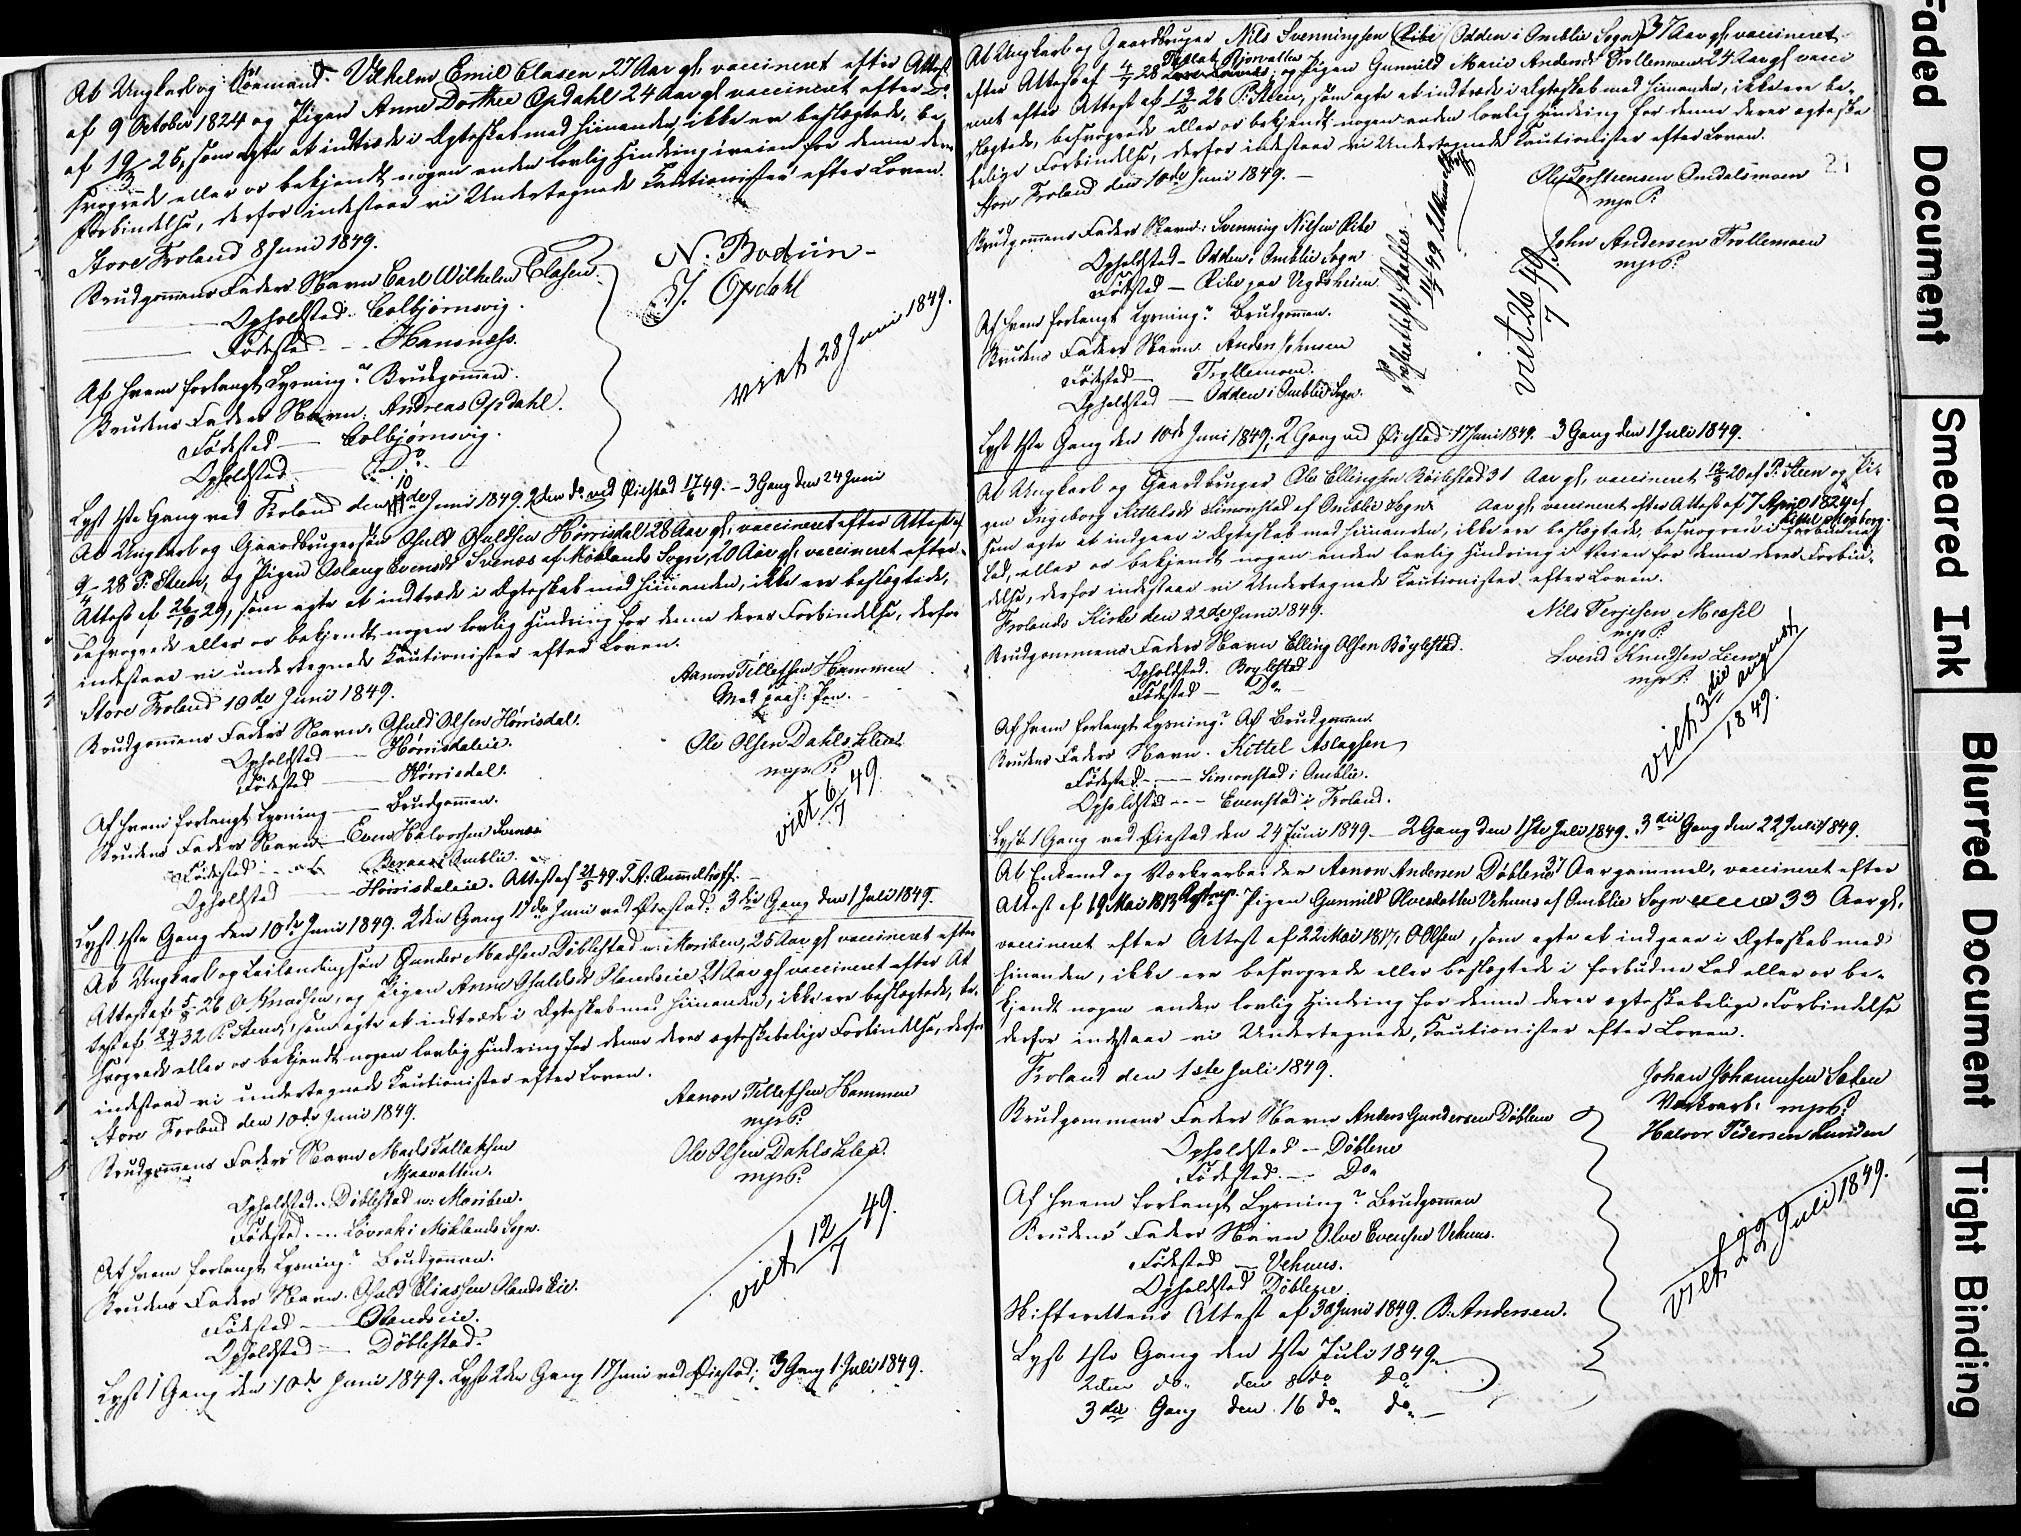 At Ungkarl og Sømand Vilhelm Emil Clasen, 27 Aar gl. vaccineret efter Attest
af 9 October 1824 og Pigen Anne Dorthee Opdahl 24 Aar gl. vaccineret efter Do
af 19/3 25, som agte at indtræde i Ægteskab med hinanden ikke ere beslægtede, be-
svogrede eller os bekjendt nogen anden lovlig Hindring i veien for denne deres
Forbindelse, derfor indestaae vi Undertegnede Kautionister efter Loven.
Store Froland 8 Juni 1849.
N. Bodün
J. Opdahl
Brudgommens Faders Navn Carl Wilhelm Clasen.
Opholdsted - Colbjørnsvig.
Fødested - Hansnæss.
Af hvem forlangt Lysning? Brudgommen.
Brudens Faders Navn: Andreas Opdahl.
Fødested - Colbjørnsvig.
Opholdsted - Do.
viet 28 Juni 1849.
Lyst 1ste Gang ved Froland den 10de Juni 1849. 2den do ved Øiestad 17/6 49. - 3 Gang den 24 Juni
At Ungkarl og Gaardbrugersøn Ohuld Ohuldsen Hørrisdal 28 Aar gl. vaccineret efter Attest af
9/4 28 P. Steen, og Pigen Aslaug Evensd. Svenæs af Møklands Sogn, 20 Aar gl. vaccineret efter
Attest af 26/10 29, som agte at indtræde i Ægteskab med hinanden, ikke ere beslægtede,
besvogrede eller os bekjendt nogen lovlig Hindring for denne deres Forbindelse, derfor
indestaae vi undertegnede Kautionister efter Loven.
Store Froland 10de Juni 1849.
Aanon Tellefsen Hammen
Med paah. Pen.
Ole Olsen Dahlsklev
m.p.P.
Brudgommens Faders Navn: Ohuld Olsen Hørrisdal.
Opholdsted - Hørrisdaleie.
Fødested - Hørrisdal.
Af hvem forlangt Lysning - Brudgommen.
Brudens Faders Navn - Even Halvorsen Svenæs
Fødested - i Omblie.
Opholdsted - Hørrisdaleie. Attest af 21/5 49. T. A. Rummelhoff.
viet 6/7 49.
Lyst 1ste Gang den 10de Juni 1849. 2den Gang 17de Juni ved Øiestad. 3die Gang den 1 Juli 1849.
At Ungkarl og Leilændingssøn Gunder Madsen Døblestad u. Moriben, 25 Aar gl vaccineret efter
Attest af 5/5 26 O. Knudsen, og Pigen Anne Ohuldsd. Olandseie 21 Aar gl vaccineret efter At
test af 24/4 32 P. Steen, som agte at indtræde i Ægteskab med hinanden, ikke ere beslægtede, be-
svogrede eller os bekjendt nogen lovlig Hindring for denne deres ægteskabelige Forbindelse, derfor
indestaae vi undertegnede Kautionister efter Loven.
Store Froland den 10de Juni 1849.
Aanon Tellefsen Hammen
m.p.P.
Ole Olsen Dahlsklev
m.p.P.
Brudgommens Faders Navn Mads Tallaksen
Mjaavatten.
Opholdsted - Døblestad u. Moriben.
Fødested - Løvrak i Møklands Sogn.
Af hvem forlangt Lysning? Brudgommen.
Brudens Faders Navn. Ohuld Eliassen Olandseie.
Fødested - Olandseie.
Opholdsted - Døblestad.
viet 12/7 49.
Lyst 1 Gang den 10de Juni 1849. Lyst 2den Gang 17 Juni ved Øiestad; 3 Gang 1 Juli 1849.
At Ungkarl og Gaardbruger Nils Svenningsen (Ribe) Odden i Omblie Sogn, 37 Aar gl. vaccineret
efter Attest af 4/7 28 og Pigen Gunnild Marie Andersd. Trollemoen 24 Aar gl vacci
neret efter Attest af 12/2 26 P. Steen, som agte at indtræde i Ægteskab med hinanden, ikke ere be-
slægtede, besvogrede eller os bekjendt nogen anden lovlig Hindring for denne deres ægteska-
belige Forbindelse, derfor indestaae vi Undertegnede Kautionister efter Loven.
Store Froland den 10de Juni 1849.
21
Ole Torstensen Omdalsmoen
m.p.P.
John Andersen Trollemoen
m.p.P.
Brudgommens Faders Navn: Svenning Nilsen Ribe
Opholdsted - Odden i Omblie Sogn
Fødested - Ribe paa Vegdsheien.
Af hvem forlangt Lysning? Brudgommen.
Brudens Faders Navn. Anders Johnsen
Fødested - Trollemoen.
Opholdsted - Odden i Omblie Sogn.
viet 26/7 49.
Lyst 1ste Gang den 10de Juni 1849; 2 Gang ved Øiestad 17 Juni 1849. 3 Gang den 1 Juli 1849.
At Ungkarl og Gaardbruger Ole Ellingsen Bøilestad 31 Aar gl. vaccineret 12/9 20 af P. Steen og Pi-
gen Ingeborg Kittelsd. Simonstad af Omblie Sogn Aar gl. vaccineret efter Attest af 7 April 1824 af
som agte at indgaae i Ægteskab med hinanden, ikke ere beslægtede, besvogrede i forbudne
Led, eller os bekjendt nogen anden lovlig Hindring i Veien for denne deres Forbin-
delse, derfor indestaae vi Undertegnede Kautionister efter Loven.
Frolands Kirke den 22de Juni 1849.
Nils Terjesen Mesel
m.p.P.
Svend Knudsen Lien
m.p.P.
Brudgommens Faders Navn Elling Olsen Bøylestad.
Opholdsted. Boylestad
Fødested - Do
Af hvem forlangt Lysning? Af Brudgommen.
Brudens Faders Navn. Kittel Aslagsen
Fødested - Simonstad i Omblie.
Opholdsted - Evenstad i Froland.
viet 3die august 1849.
Lyst 1 Gang ved Øiestad den 24 Juni 1849 - 2 Gang den 1ste Juli 1849. 3die Gang den 22 Juli 1849.
At Enkemd og Værksarbeider Aanon Andersen Døblene 37 Aar gammel, vaccineret efter
Attest af 19 Mai 1813 og Pigen Gunnild Olvesdatter Vehuus af Omblie Sogn 33 Aar gl.
vaccineret efter Attest af 22 Mai 1817, O Olsen, som agte at indgaae i Ægteskab med
hinanden, ikke ere besvogrede eller beslægtede i forbudne Led eller os be-
kjendt nogen anden lovlig Hindring for denne deres ægteskabelige Forbindelse
derfor indestaae vi Undertegnede Kautionister efter Loven.
Froland den 1ste Juli 1849.
Johan Johannesen Sæten
Værksarb. m.p.P.
Halvor Pedersen Lunden
Brudgommens Faders Navn Anders Gundersen Døblene
Opholdsted - Døblene
Fødested - Do
Af hvem forlangt Lysning? Brudgommen
Brudens Faders Navn Olve Evensen Vehuus.
Fødested - Vehuus.
Opholdsted Døblene
viet 22 Juli 1849.
Skifterettens Attest af 30 Juni 1849. B. Andersen.
Lyst 1ste Gang den 1ste Juli 1849.
2den do den 8de do
3die Gang den 16 do do
Faded Document
Smeared Ink
Blurred Document
Tight Binding